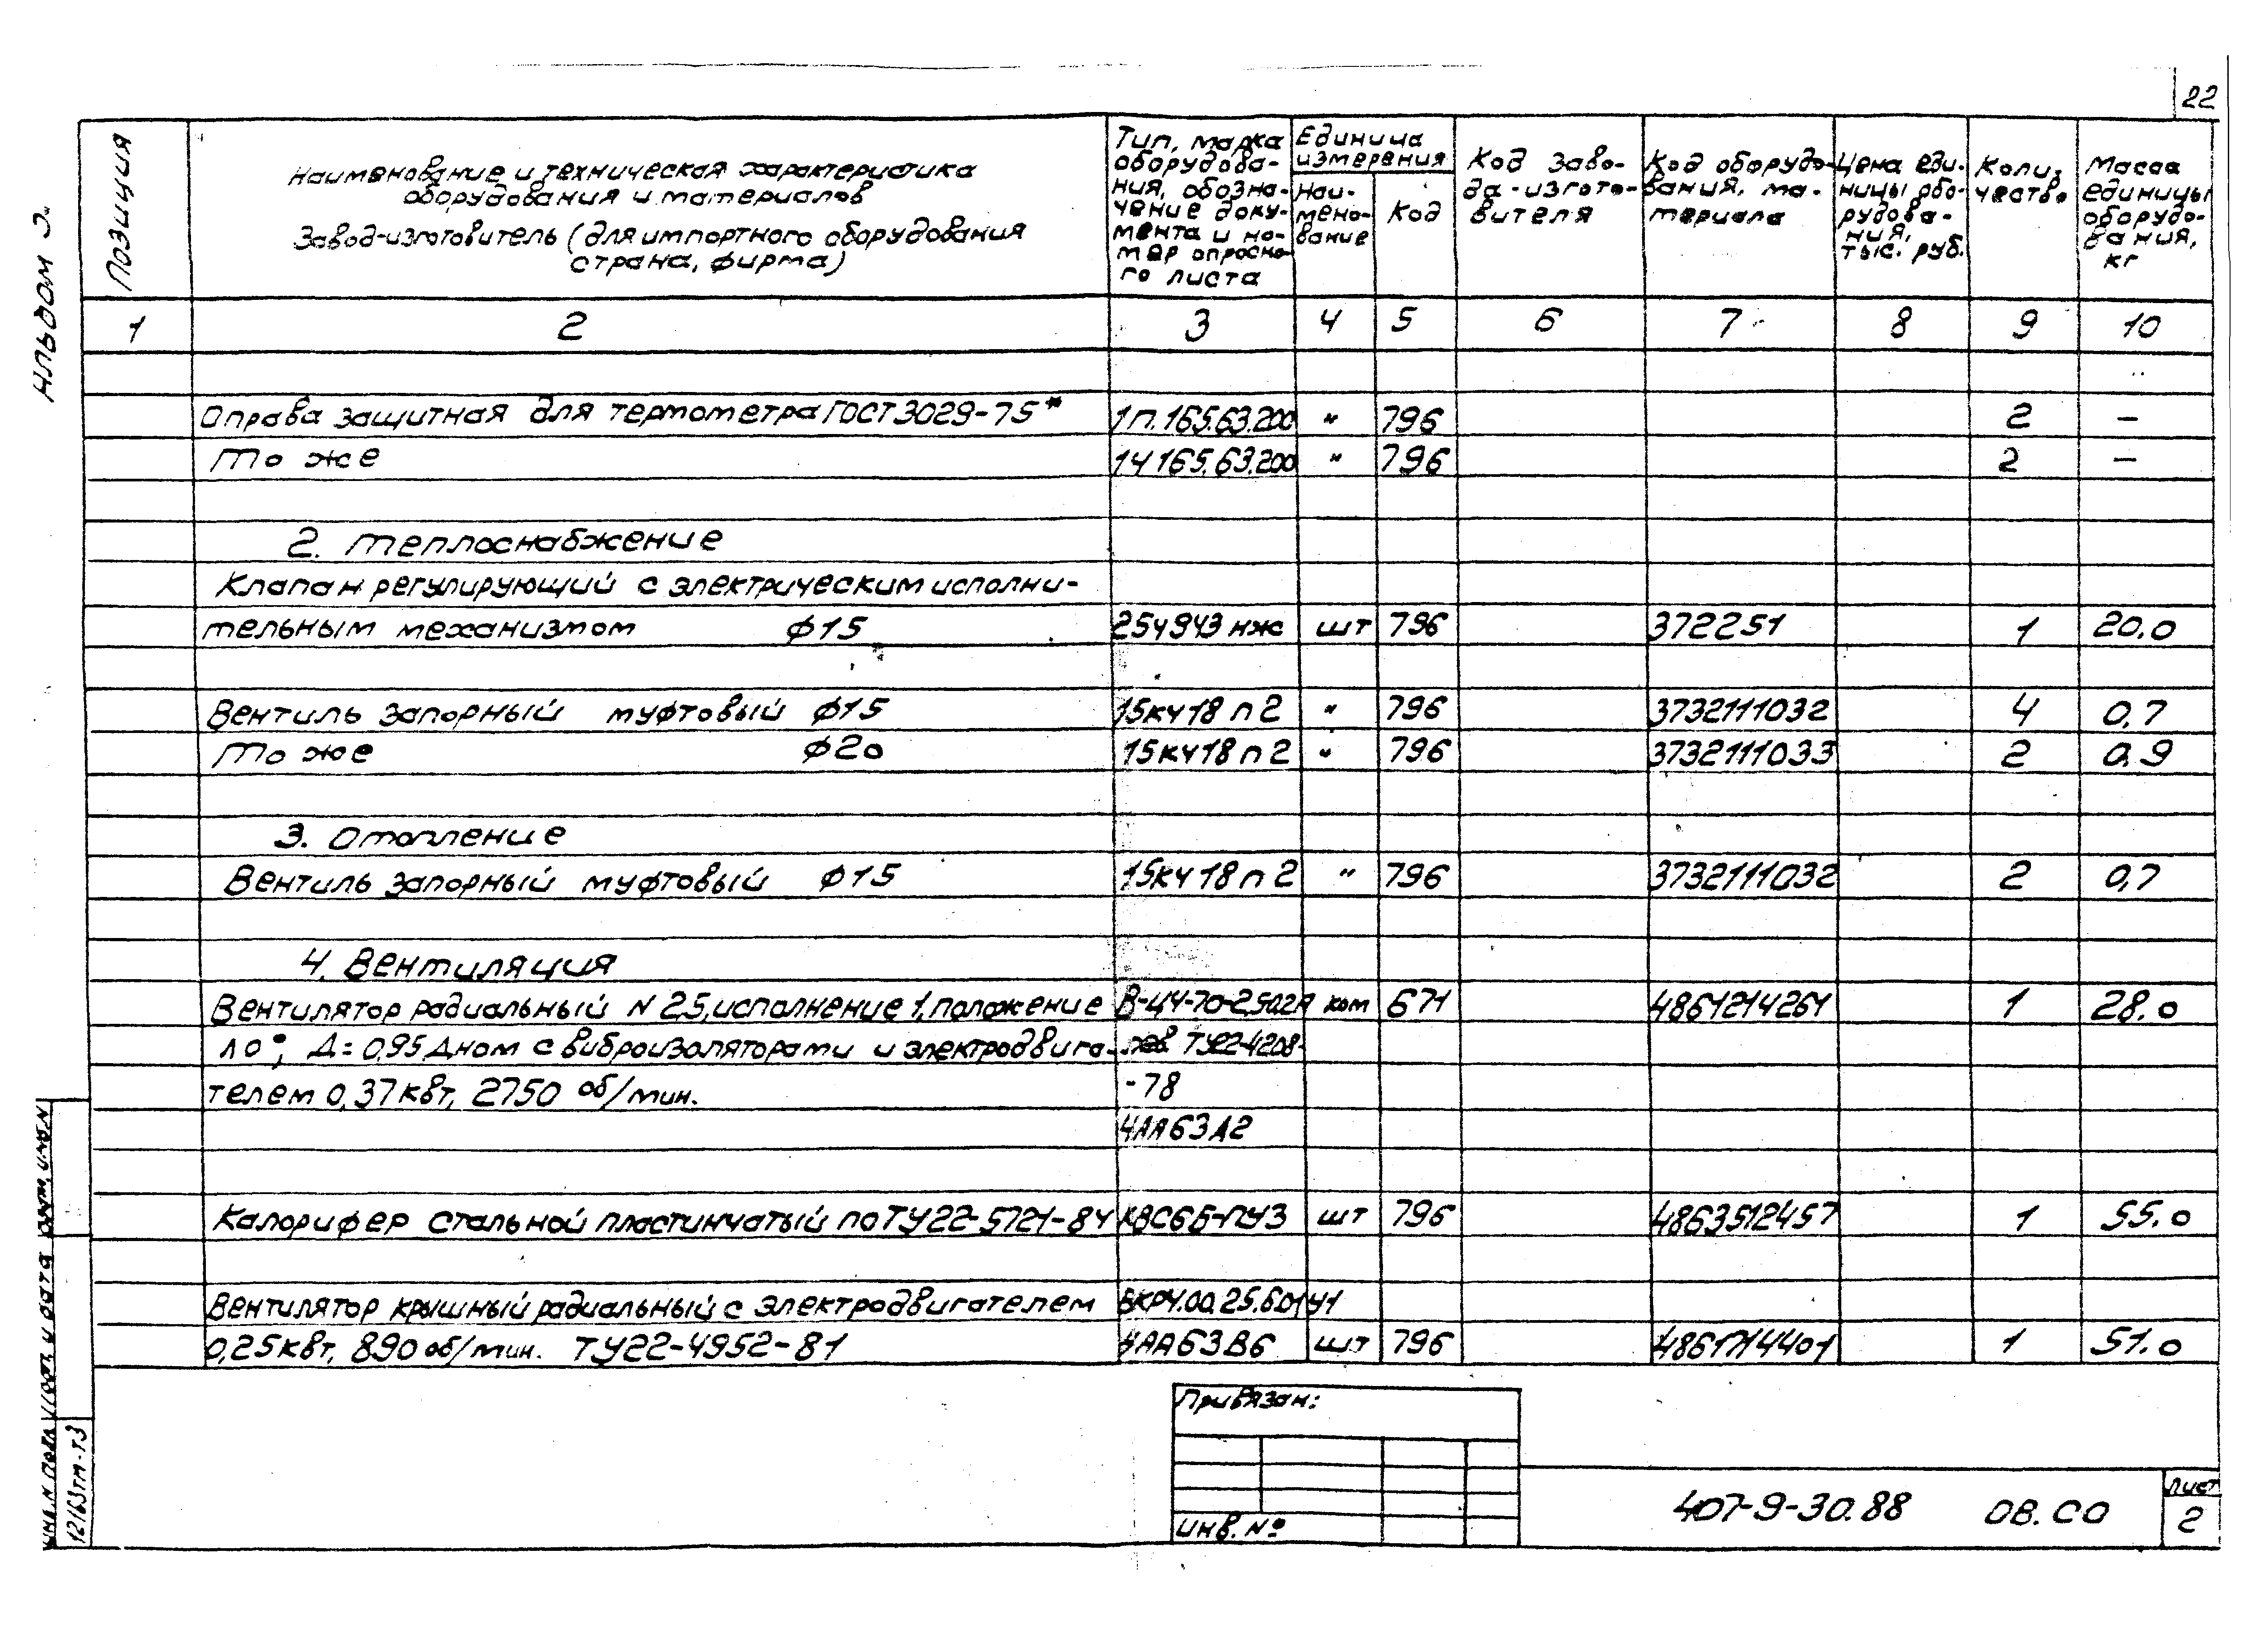 22
Альбом 3
Позиция
Наименование и техническая характеристика
оборудования и материалов
Завод-изготовитель (для импортного оборудования
страна, фирма)
Тип, марка
оборудова-
ния, обозна-
чение доку-
мента и но-
мер опросно-
го листа
Единица
измерения
Наи-
мено-
вание
Код
Код заво-
да-изгото-
вителя
Код оборудо-
вания, ма-
териала
Цена еди-
ницы обо-
рудова-
ния,
тыс. руб.
Коли-
чество
Масса
единицы
оборудо-
вания,
кг
1 2 3 4 5 6 7 8 9 10
Оправа защитная для термометра ГОСТ 3029-75* 1П.165.63.200 " 796 2 —
То же 1У 165.63.200 " 796 2 —
2. Теплоснабжение
Клапан регулирующий с электрическим исполни-
тельным механизмом ϕ15 25ч943 нж шт 796 372251 1 20.0
Вентиль запорный муфтовый ϕ15 15кч18 п2 " 796 3732111032 4 0,7
То же ϕ20 15кч18 п2 " 796 3732111033 2 0.9
3. Отопление
Вентиль запорный муфтовый ϕ15 15кч18 п2 " 796 3732111032 2 0,7
4. Вентиляция
Вентилятор радиальный N 2,5, исполнение 1, положение В-Ц4-70-2,5.02А ком 671 4861214261 1 28.0
Л0°, Д=0,95 Дном с виброизоляторами и электродвига- ТУ22-4208-
телем 0,37 квт, 2750 об/мин. -78
4АА63А2
Калорифер стальной пластинчатый по ТУ22-5721-84 КВС6Б-ПУ3 шт 796 4863512457 1 55.0
Вентилятор крышный радиальный с электродвигателем ВКРЧ.00.25.6.01У1
0,25 квт, 890 об/мин. ТУ22-4952-81 4АА63В6 шт 796 4861714401 1 51.0
Привязан:
Инв. №
407-9-30.88 ОВ.СО
Лист
2
Инв. N подл. Подп. и дата Взам. инв. N
12163тм-т3